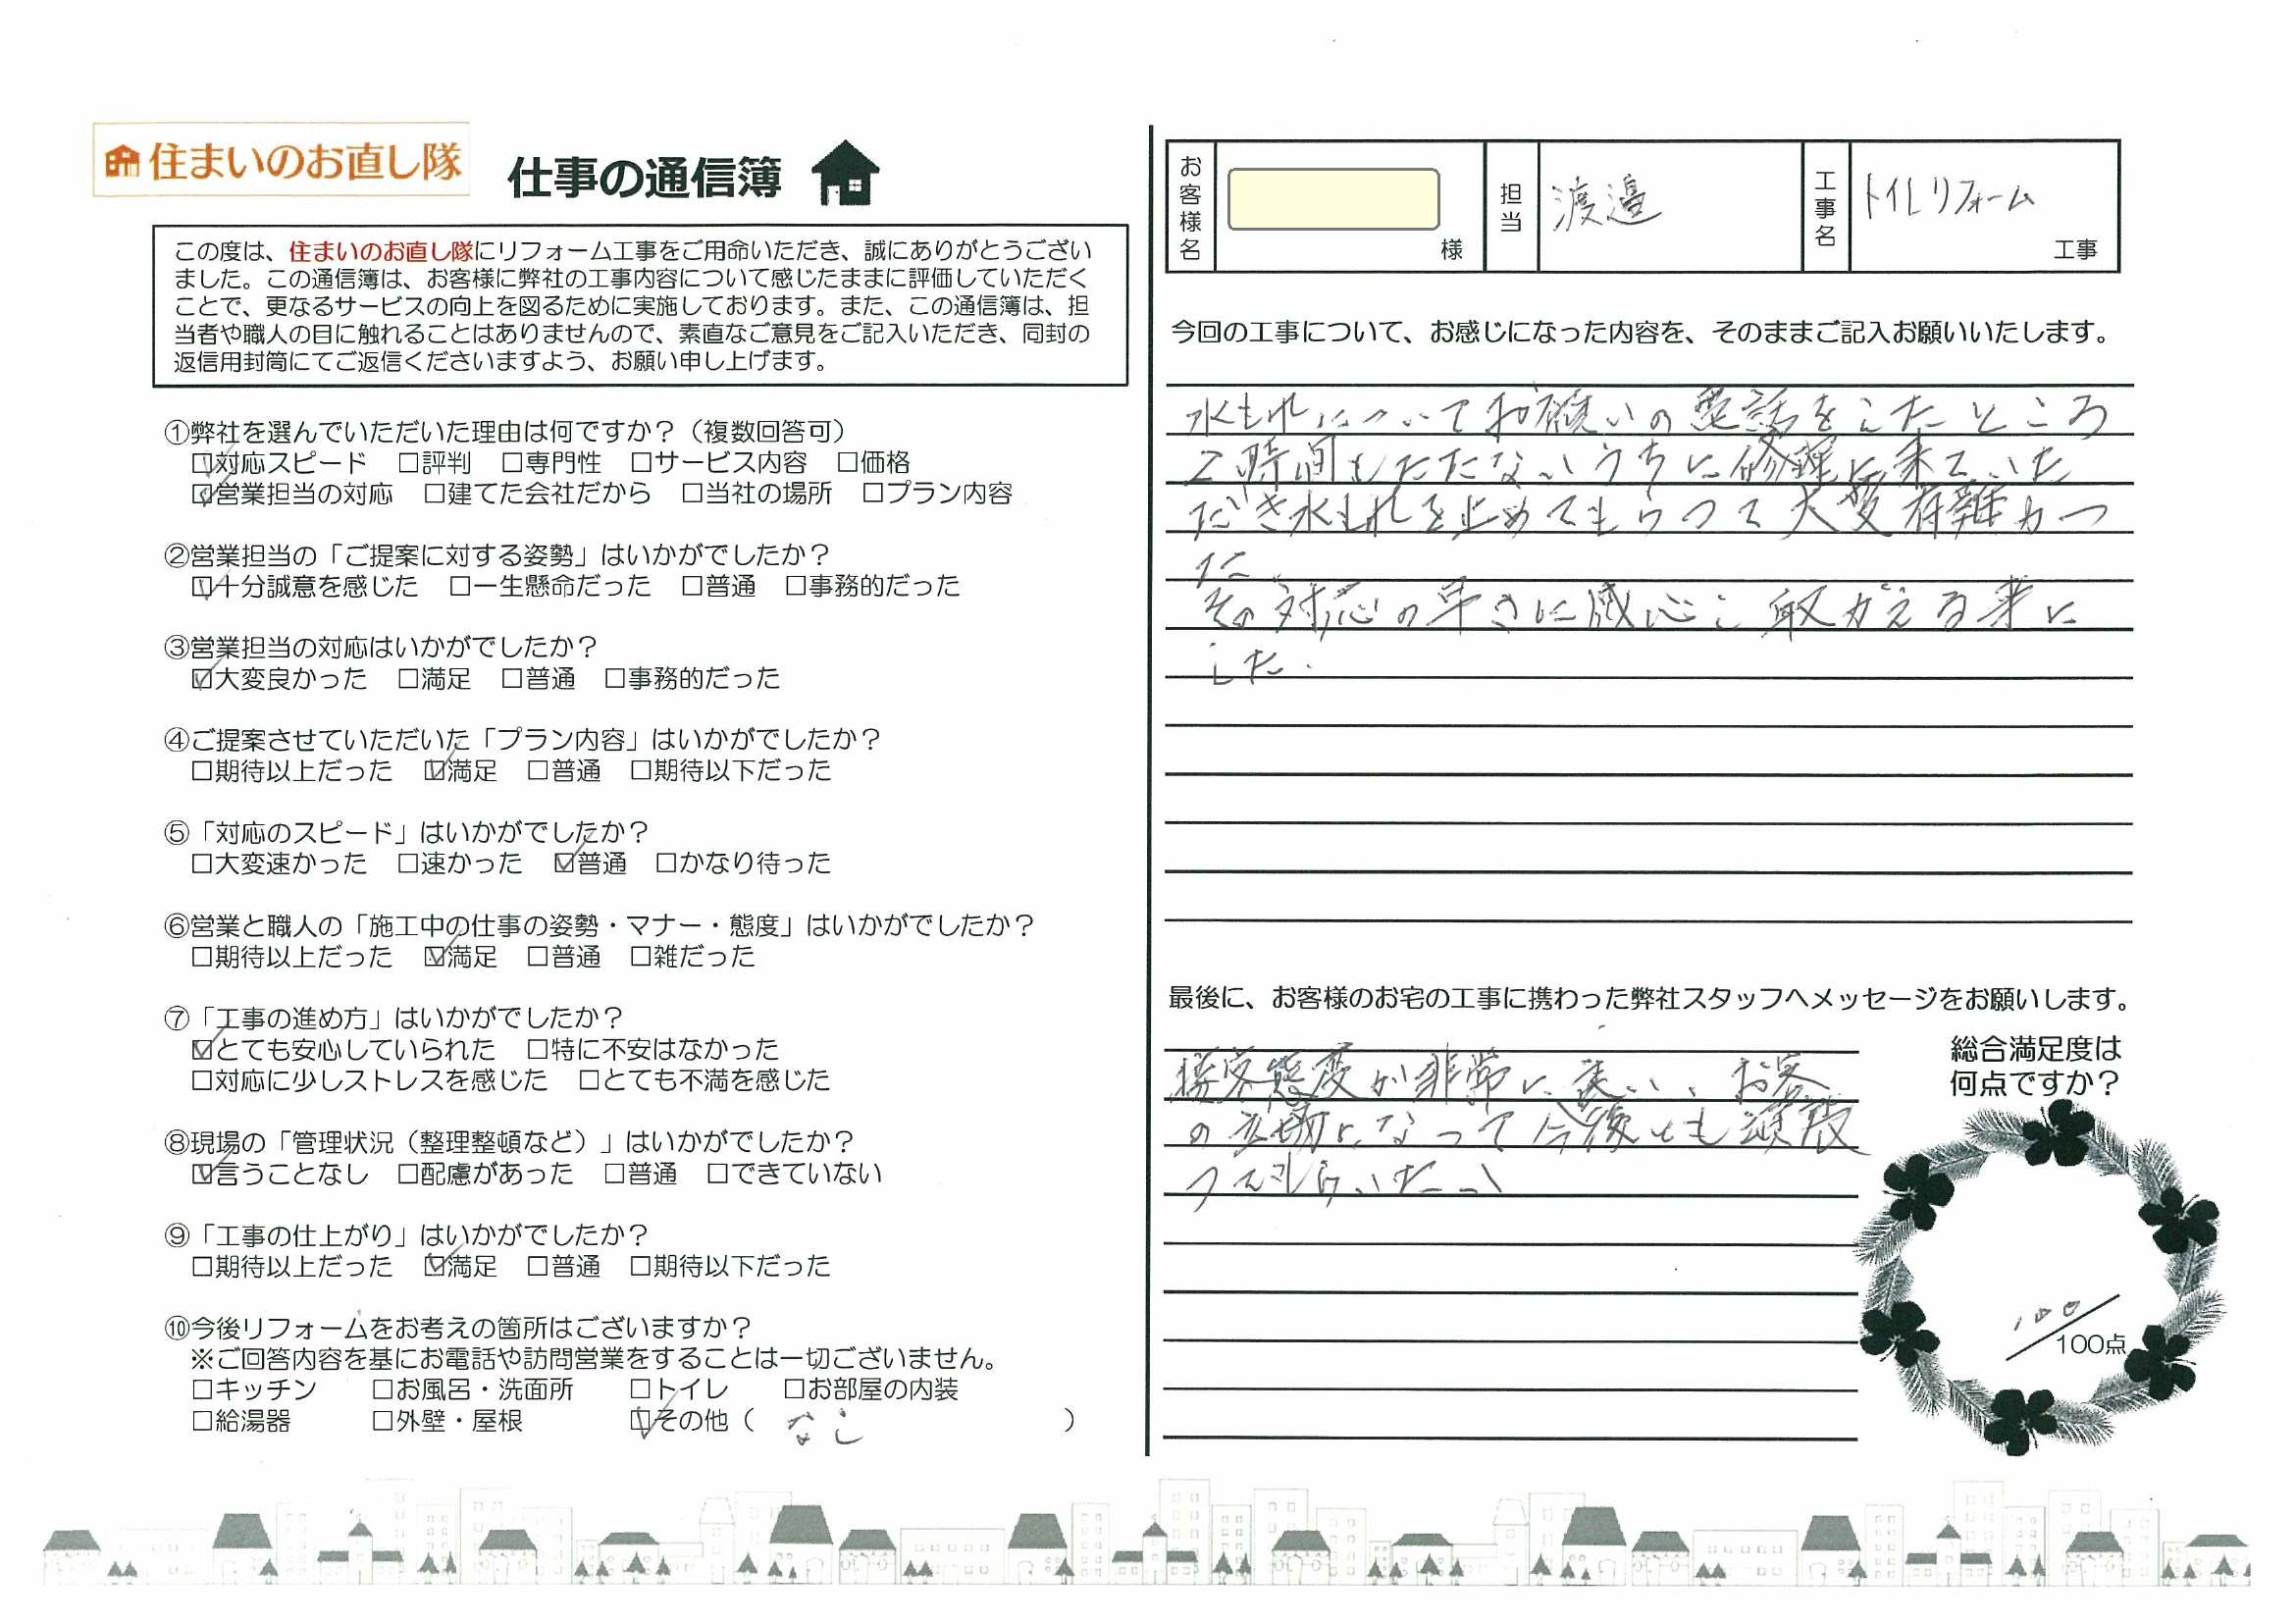 住まいのお直し隊
仕事の通信簿
この度は、住まいのお直し隊にリフォーム工事をご用命いただき、誠にありがとうござい
ました。この通信簿は、お客様に弊社の工事内容について感じたままに評価していただく
ことで、更なるサービスの向上を図るために実施しております。また、この通信簿は、担
当者や職人の目に触れることはありませんので、素直なご意見をご記入いただき、同封の
返信用封筒にてご返信くださいますよう、お願い申し上げます。
①弊社を選んでいただいた理由は何ですか？（複数回答可）
☑対応スピード □評判 □専門性 □サービス内容 □価格
☑営業担当の対応 □建てた会社だから □当社の場所 □プラン内容
②営業担当の「ご提案に対する姿勢」はいかがでしたか？
☑十分誠意を感じた □一生懸命だった □普通 □事務的だった
③営業担当の対応はいかがでしたか？
☑大変良かった □満足 □普通 □事務的だった
④ご提案させていただいた「プラン内容」はいかがでしたか？
□期待以上だった ☑満足 □普通 □期待以下だった
⑤「対応のスピード」はいかがでしたか？
□大変速かった □速かった ☑普通 □かなり待った
⑥営業と職人の「施工中の仕事の姿勢・マナー・態度」はいかがでしたか？
□期待以上だった ☑満足 □普通 □雑だった
⑦「工事の進め方」はいかがでしたか？
☑とても安心していられた □特に不安はなかった
□対応に少しストレスを感じた □とても不満を感じた
⑧現場の「管理状況（整理整頓など）」はいかがでしたか？
☑言うことなし □配慮があった □普通 □できていない
⑨「工事の仕上がり」はいかがでしたか？
□期待以上だった ☑満足 □普通 □期待以下だった
⑩今後リフォームをお考えの箇所はございますか？
※ご回答内容を基にお電話や訪問営業をすることは一切ございません。
□キッチン □お風呂・洗面所 □トイレ □お部屋の内装
□給湯器 □外壁・屋根 ☑その他（ なし ）
お客様名 様 担当 渡邉 工事名 トイレリフォーム 工事
今回の工事について、お感じになった内容を、そのままご記入お願いいたします。
水もれについてお願いの電話をしたところ
2時間もたたないうちに修理に来ていた
だき水もれを止めてもらって大変有難かっ
た
その対応の早さに感心し取かえる事に
した.
最後に、お客様のお宅の工事に携わった弊社スタッフへメッセージをお願いします。
接客態度が非常に良い、お客
の立場になって今後とも頑張
ってもらいたい
総合満足度は
何点ですか？
100
100点